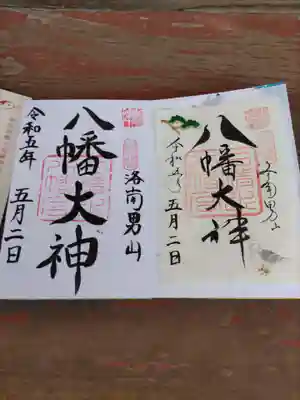 洛南男山
八幡大神
令和五年
五月二日
洛南男山
八幡大神
令和五年
五月二日